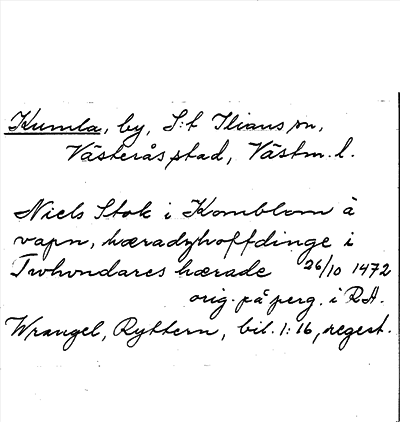 Kumla, by, S:t Ilians sn,
Västerås stad, Västm. l.
Niels Stok i Komblom å
vapn, hæradzhoffdinge i
Twhvndares hærade 26/10 1472
orig. på perg. i RA.
Wrangel, Ryttern, bil. 1:16, regest.